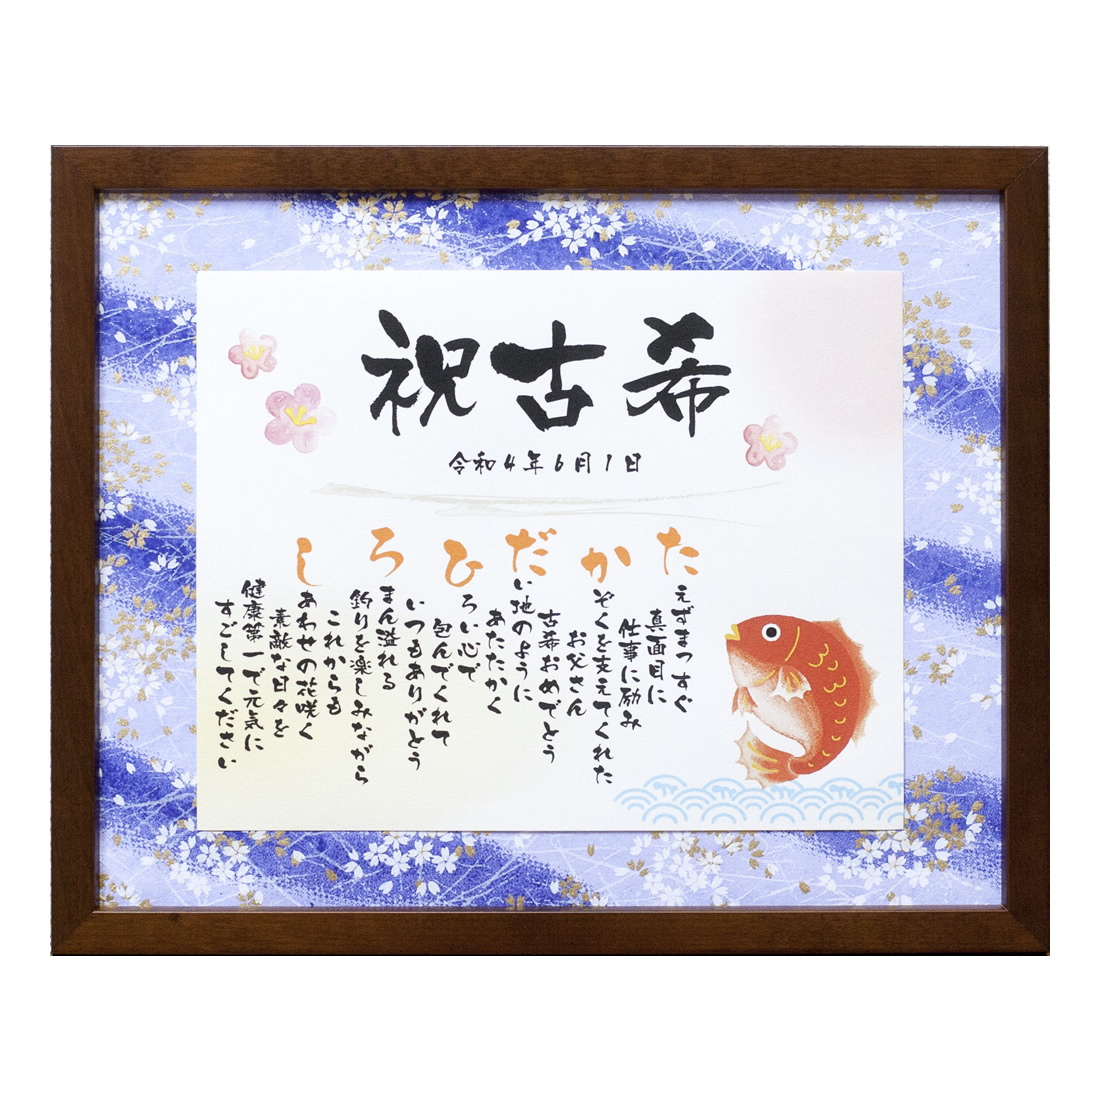 祝古希
令和4年6月1日
たえずまっすぐ
真面目に
仕事に励み
かぞくを支えてくれた
お父さん
古希おめでとう
だい地のように
あたたかく
ひろい心で
包んでくれて
いつもありがとう
ろまん溢れる
釣りを楽しみながら
これからも
しあわせの花咲く
素敵な日々を
健康第一で元気に
すごしてください